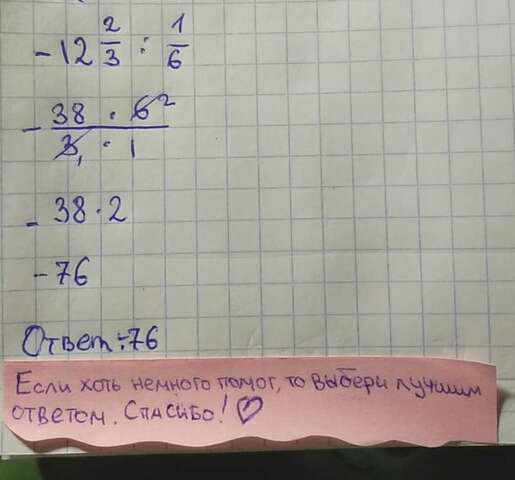 -12 2/3 : 1/6
- 38 · 6 2 / 3 1 · 1
- 38 · 2
-76
Ответ:-76
Если хоть немного помог, то выбери лучшим
ответом. Спасибо! ♡